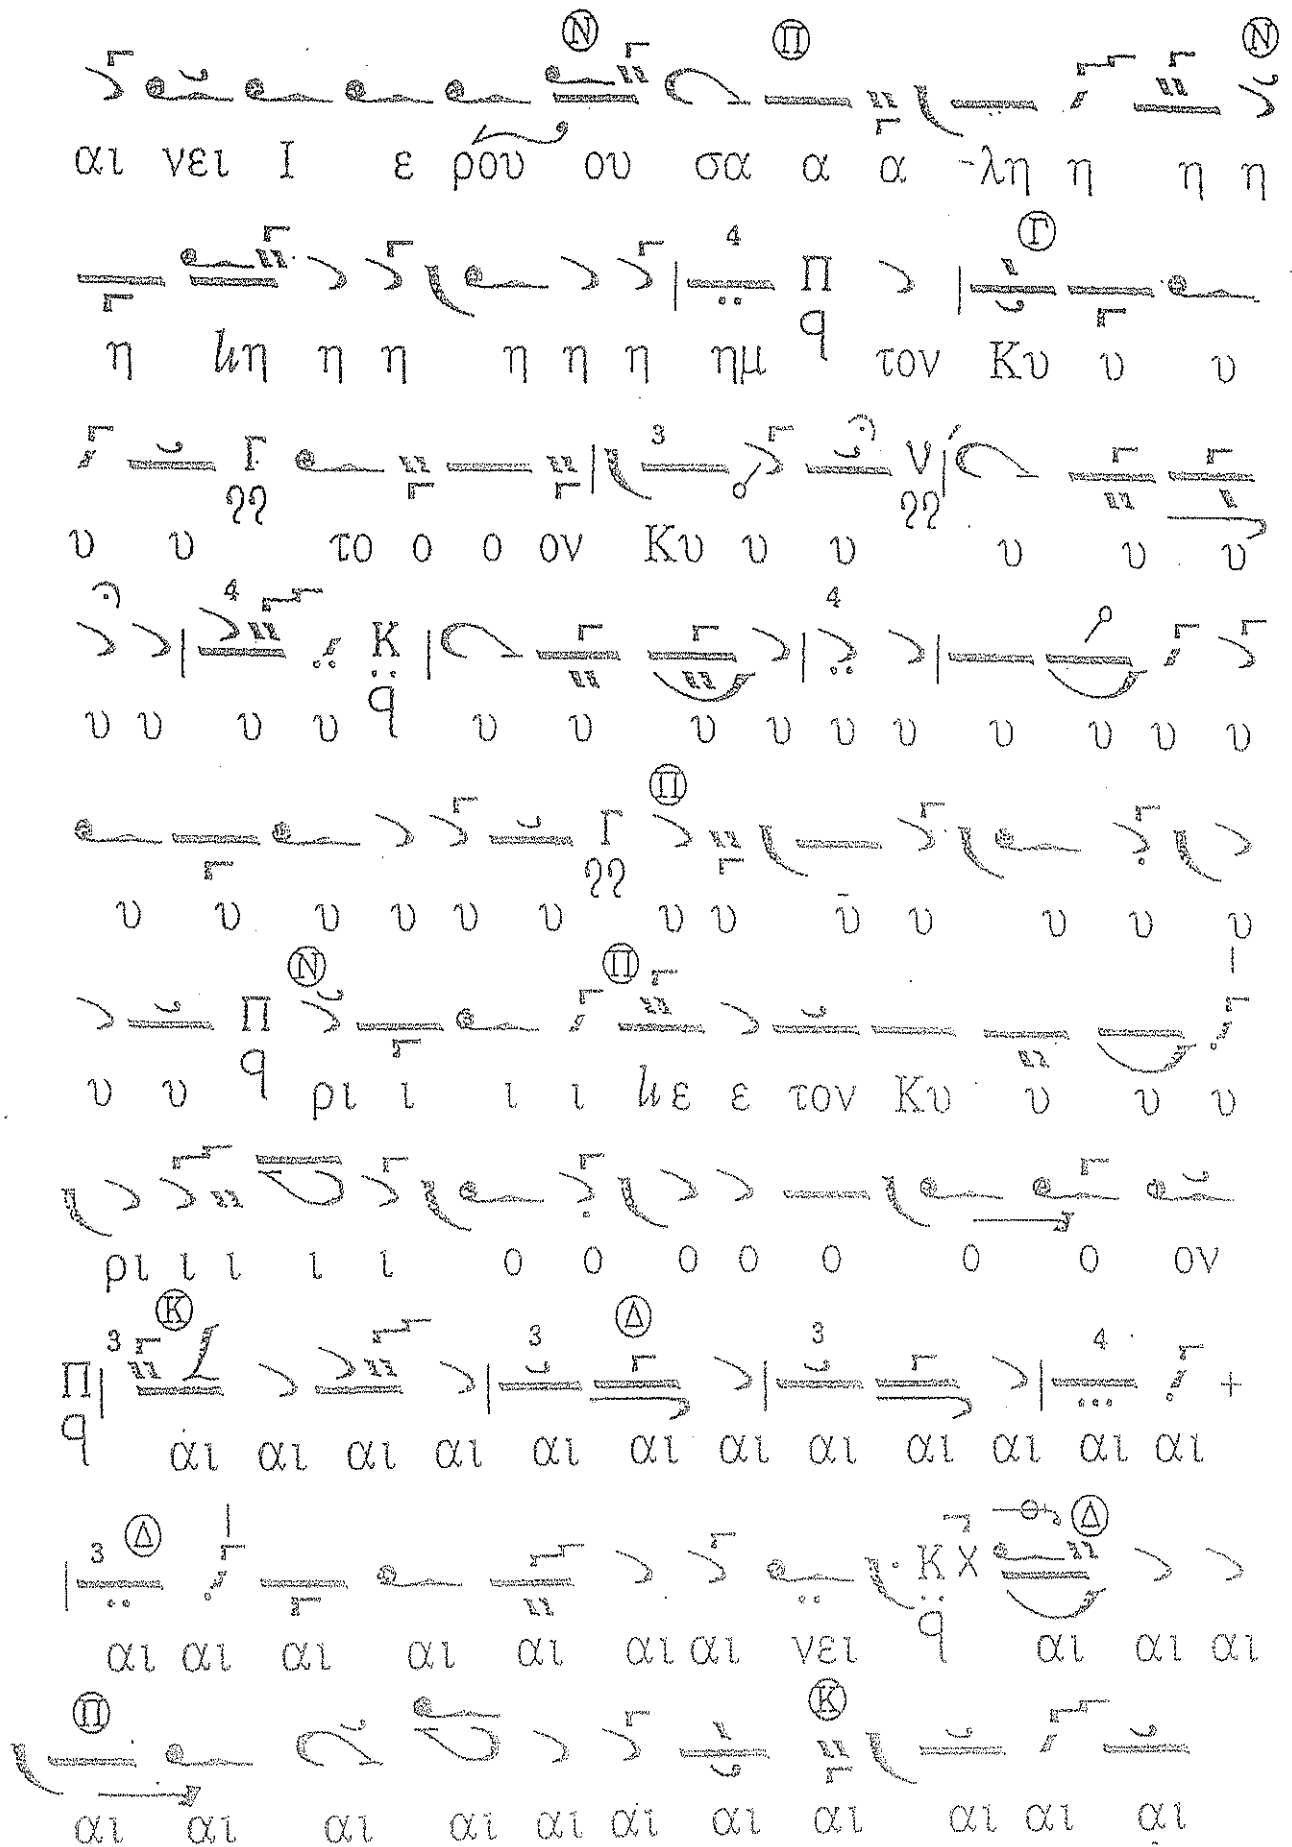 Ν Π Ν
αι νει Ι ε ρου ου σα α α -λη η η η
4 Π Γ
η η η η η η η ημ q τον Κυ υ υ
Γ 3 ν
υ υ το ο ο ον Κυ υ υ υ υ υ
4 Κ 4
υ υ υ υ q υ υ υ υ υ υ υ υ υ υ
Γ Π
υ υ υ υ υ υ υ υ υ υ υ υ υ
Π Ν Π
υ υ q ρι ι ι ι ε ε τον Κυ υ υ υ
ρι ι ι ι ι ο ο ο ο ο ο ο ον
Π 3 Κ 3 Δ 3 4 +
q αι αι αι αι αι αι αι αι αι αι αι αι
3 Δ Κ Χ Δ
αι αι αι αι αι αι αι νει q αι αι αι
Π Κ
αι αι αι αι αι αι αι αι αι αι αι